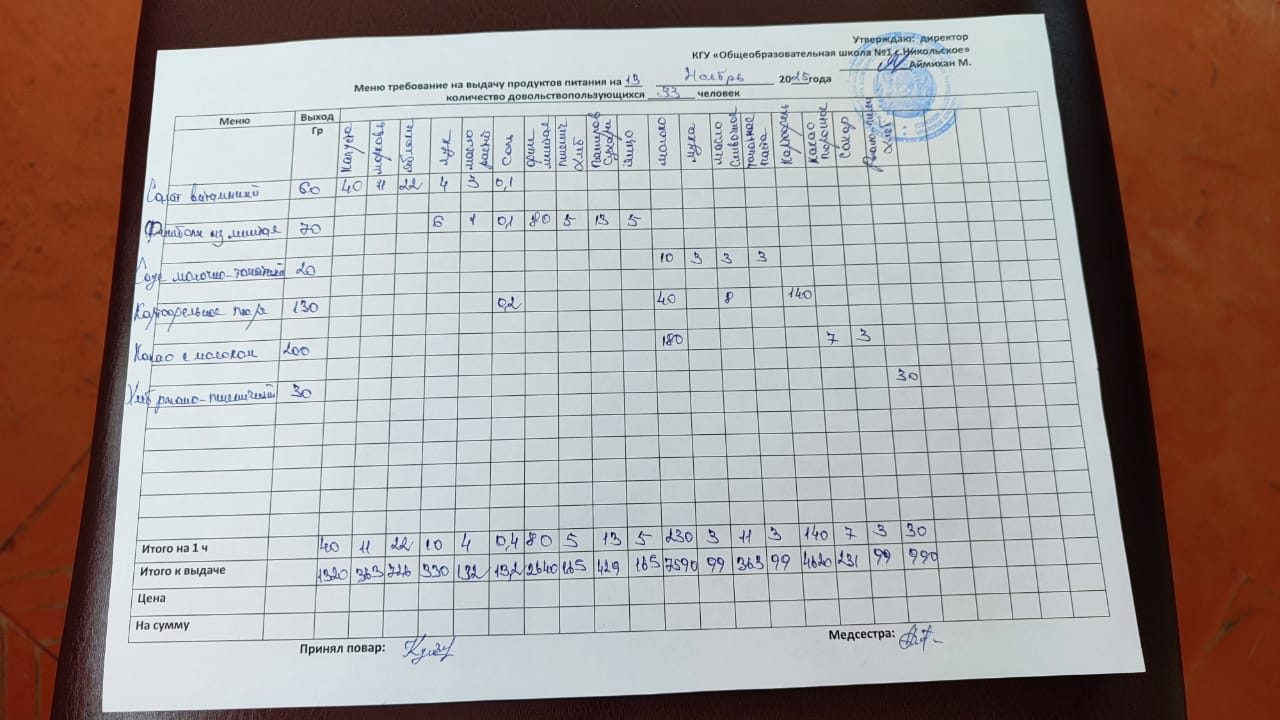 Утверждаю: директор
КГУ «Общеобразовательная школа №1 с.Никольское»
Аймихан М.
Меню требование на выдачу продуктов питания на 13 Ноябрь 2025года
количество довольствопользующихся 33 человек
Меню Выход Гр капуста морковь яблоки лук масло раст соль филе минтая пшенич хлеб Паниров сухари яйцо молоко мука масло сливочное томатное паста картофель какао порошок сахар хлеб
Салат витаминный 60 40 11 22 4 3 0,1
из минтая 70 6 1 0,1 80 5 13 5
Соус молочно-томатный 20 10 3 3 3
Картофельное пюре 130 0,2 40 8 140
Какао с молоком 200 180 7 3
Хлеб ржано-пшеничный 30 30
Итого на 1 ч 40 11 22 10 4 0,4 80 5 13 5 230 3 11 3 140 7 3 30
Итого к выдаче 1320 363 726 330 132 13,2 2640 165 429 165 7590 99 363 99 4620 231 99 990
Цена
На сумму
Принял повар: Медсестра: